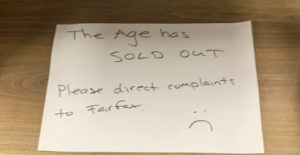 The Age has
SOLD OUT
Please direct complaints
to Fairfax.